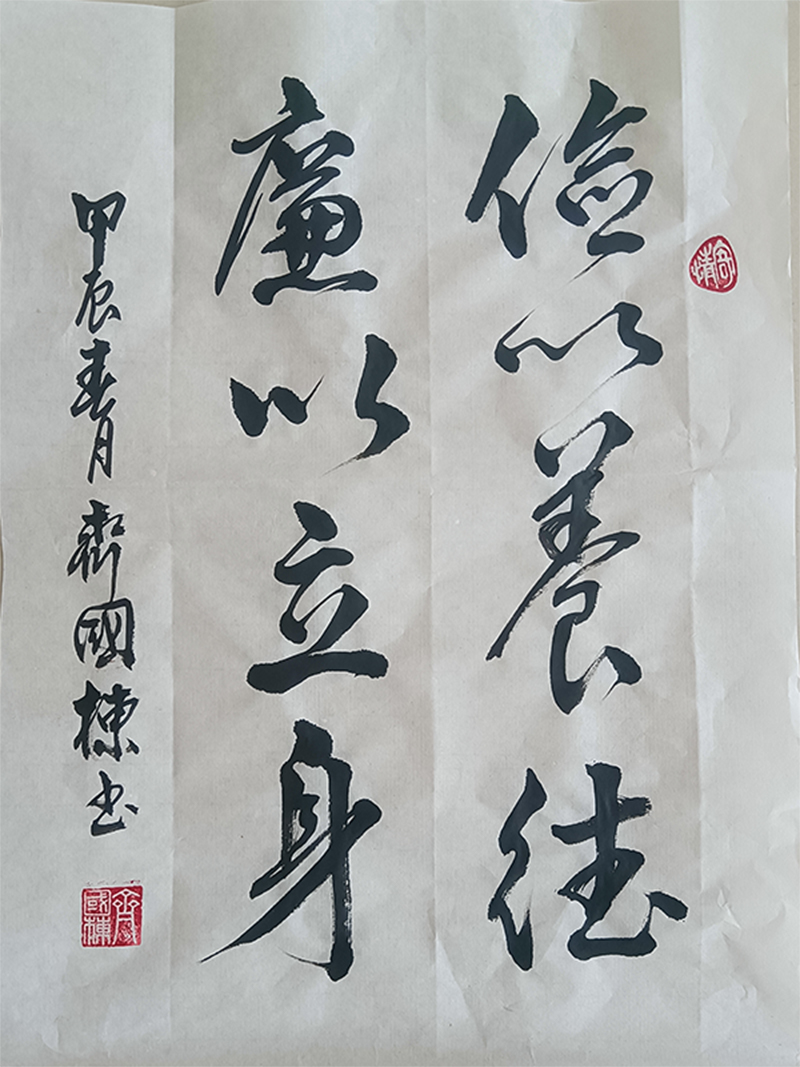 儉以養德
廉以立身
甲辰春月齊國棟书
寄情
齊國棟